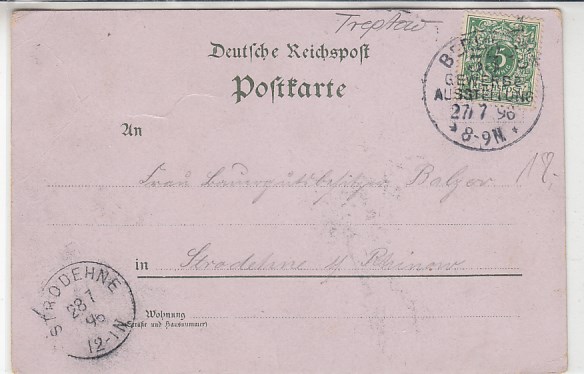 Treptow
Deutsche Reichspost
Postkarte
5
BERLIN
GEWERBE
AUSSTELLUNG
27/7 96
* 8-9N *
An
12,-
Frau Bauergutsbesitzer Balzer
in Strodehne b/ Rhinow
STRODEHNE
28/7
96
12-1N
Wohnung
(Straße und Hausnummer)